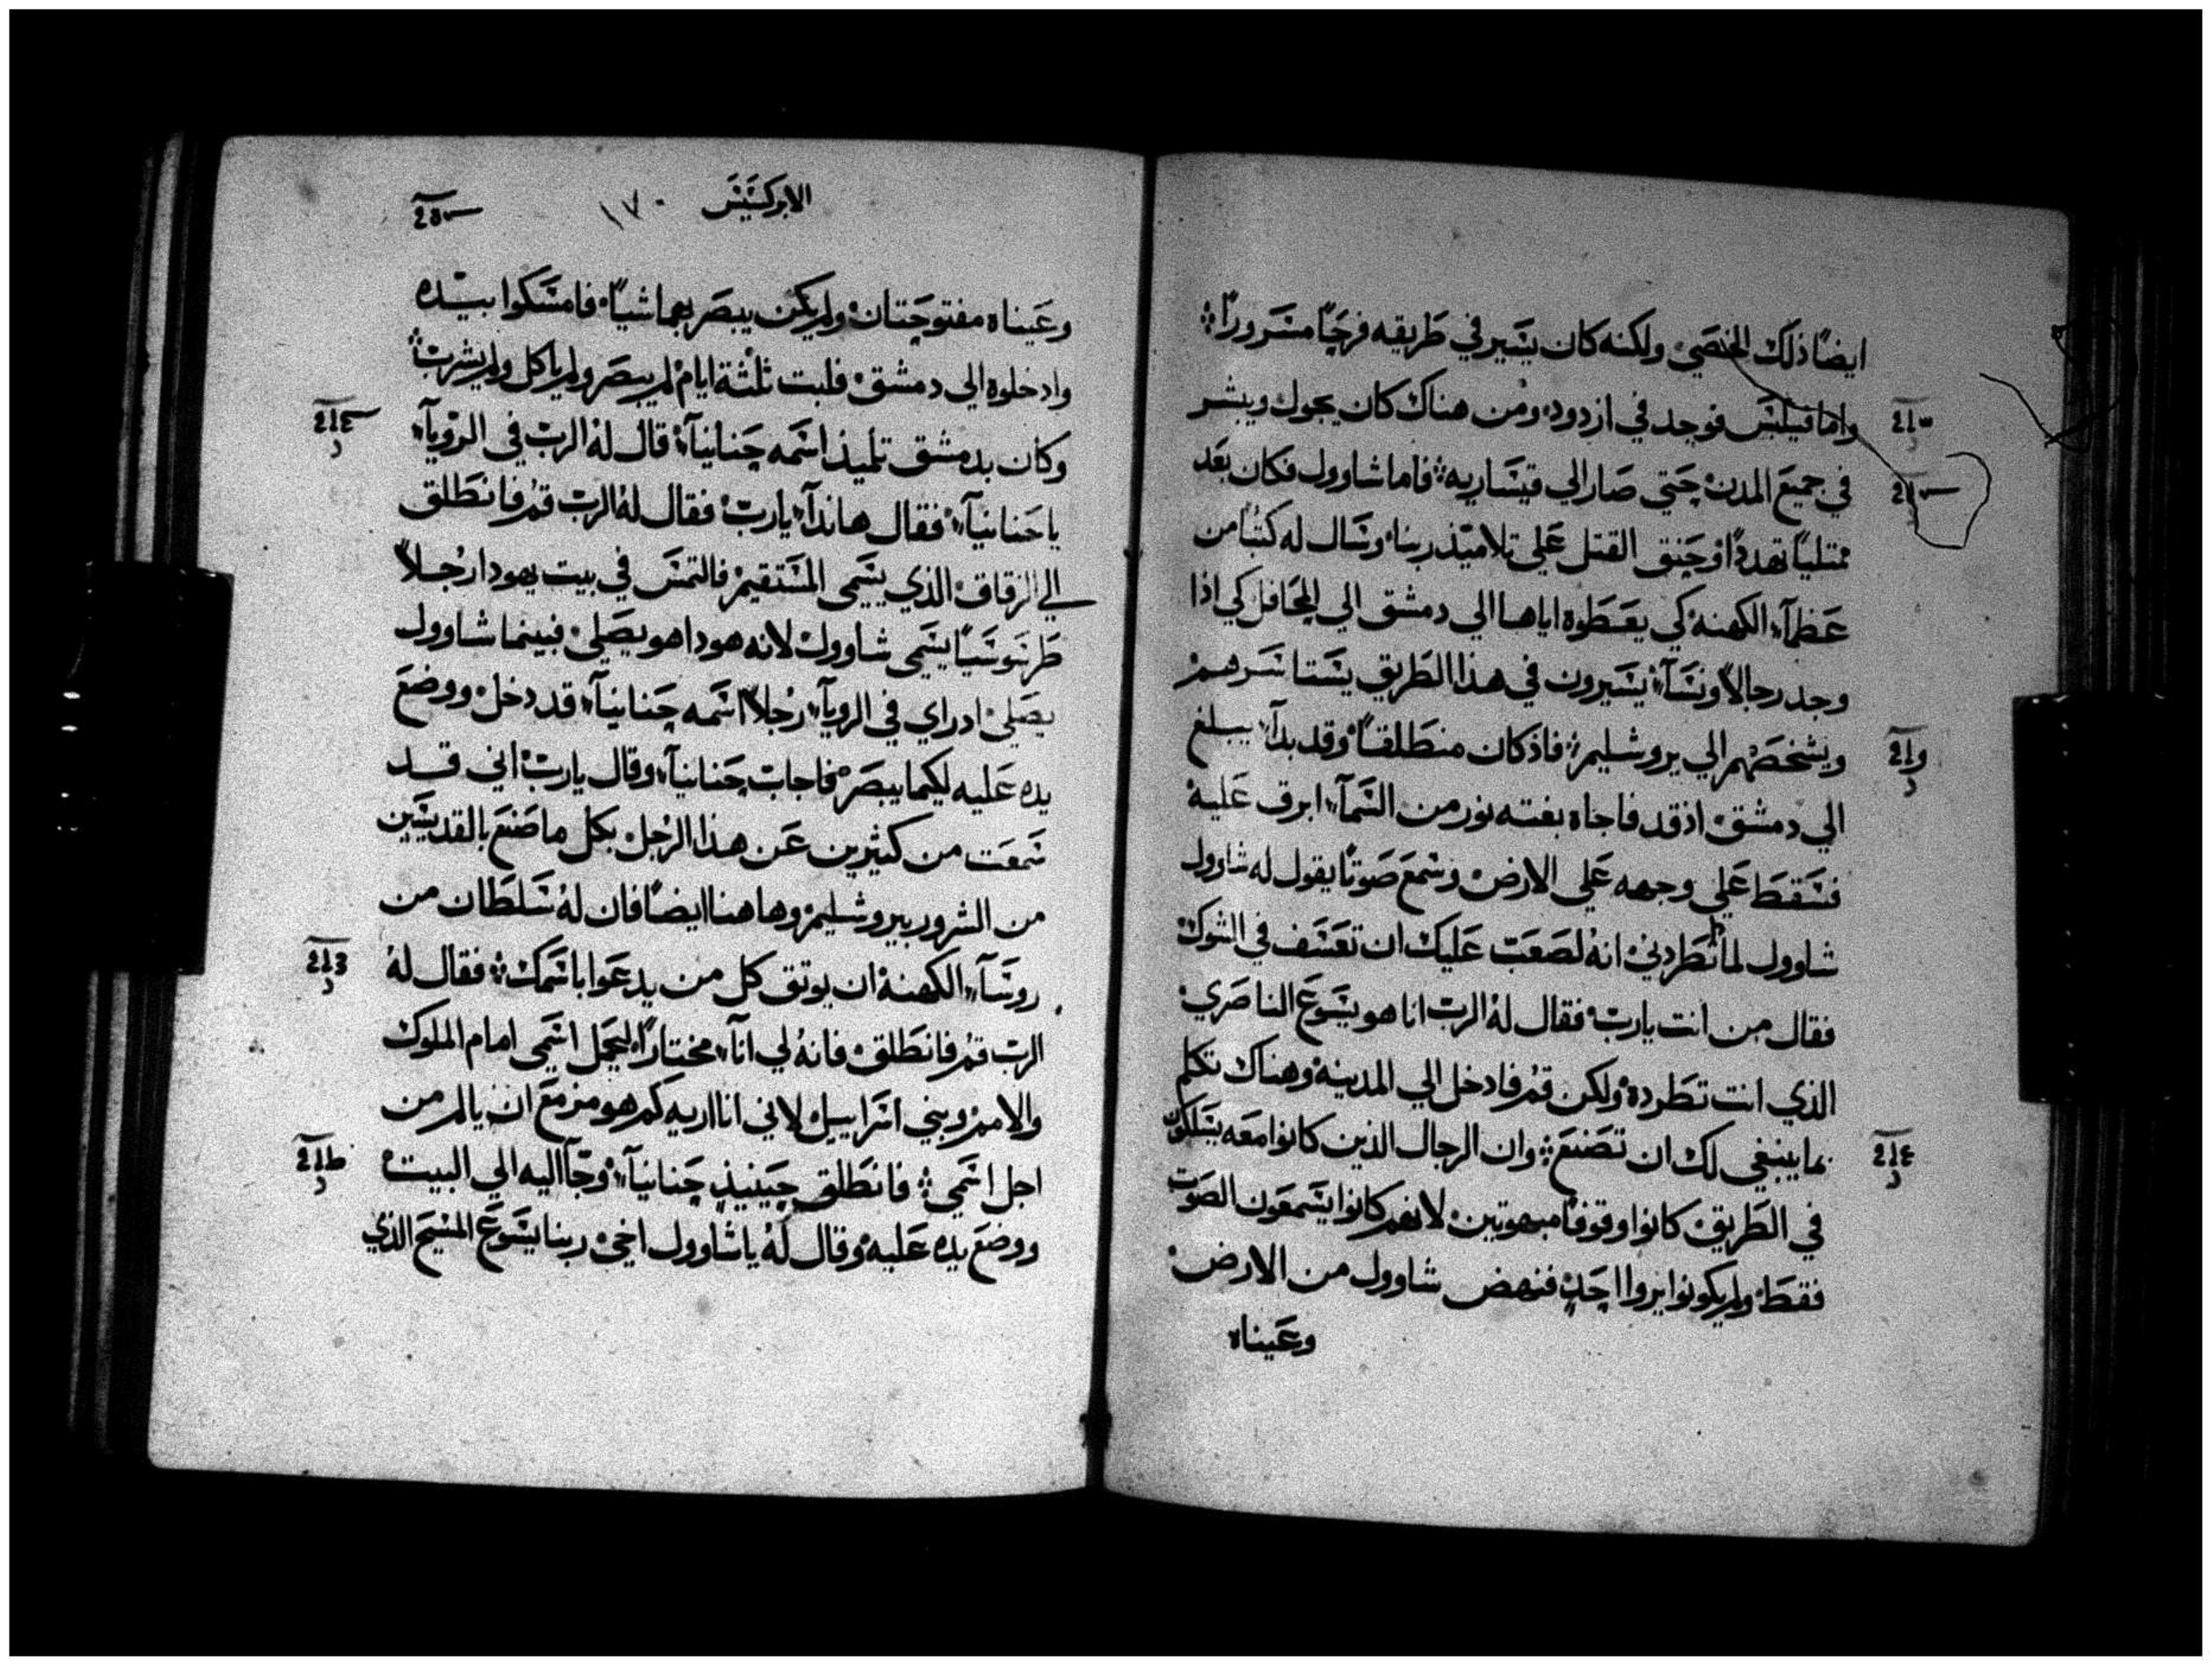 ايضًا ذلك الخصي ولكنه كان يسير في طريقه فرحًا مسرورًا
واما فيلبس فوجد في ازدود ومن هناك كان يجول ويبشر
في جميع المدن حتي صار الي قيساريه فاما شاوول فكان بعد
ممتليًا تهددًا وحنق القتل علي تلاميذ ربنا وسال له كتبًا من
عظمآء الكهنه كي يعطوه اياها الي دمشق الي المحافل كي اذا
وجد رجالًا ونسآء يسيرون في هذا الطريق يستاسرهم
ويشخصهم الي يروشليم فاذ كان منطلقًا وقد بدآء يبلغ
الي دمشق اذ قد فاجاه بغته نور من السمآء ابرق عليه
فسقط علي وجهه علي الارض وسمع صوتًا يقول له شاوول
شاوول لماذا تطردني انه لصعب عليك ان تعسف في الشوك
فقال من انت يارب فقال له الرب انا هو يسوع الناصري
الذي انت تطرده ولكن قم فادخل الي المدينه وهناك تكلم
بما ينبغي لك ان تصنع وان الرجال الذين كانوا معه يسلكون
في الطريق كانوا وقوفًا مبهوتين لانهم كانوا يسمعون الصوت
فقط ولم يكونوا يروا احد فنهض شاوول من الارض
وعيناه
الابركسيس ١٧٠
وعيناه مفتوحتان ولم يكن يبصر بهما شيًا فامسكوا بيده
وادخلوه الي دمشق فلبت ثلثة ايام لم يبصر ولم ياكل ولم يشرب
وكان بدمشق تلميذ اسمه حنانيآء قال له الرب في الرويآء
يا حنانيآء فقال هانذآ يارب فقال له الرب قم فانطلق
الي الزقاق الذي يسمي المستقيم فالتمس في بيت يهودا رجلًا
طرسوسيًا يسمي شاوول لانه هوذا هو يصلي فبينما شاوول
يصلي اذ راي في الرويآء رجلًا اسمه حنانيآء قد دخل ووضع
يده عليه لكيما يبصر فاجاب حنانيآء وقال يارب اني قد
سمعت من كثيرين عن هذا الرجل بكل ما صنع بالقديسين
من الشرور بيروشليم وهاهنا ايضًا فان له سلطان من
روسآء الكهنه ان يوتق كل من يدعوا باسمك فقال له
الرب قم فانطلق فانه لي انآء مختارًا ليحمل اسمي امام الملوك
والامم وبني اسراييل لاني انا اريه كم هو مزمع ان يالم من
اجل اسمي فانطلق حينيذٍ حنانيآء وجآ اليه الي البيت
ووضع يده عليه وقال له ياشاوول اخي ربنا يسوع المسيح الذي